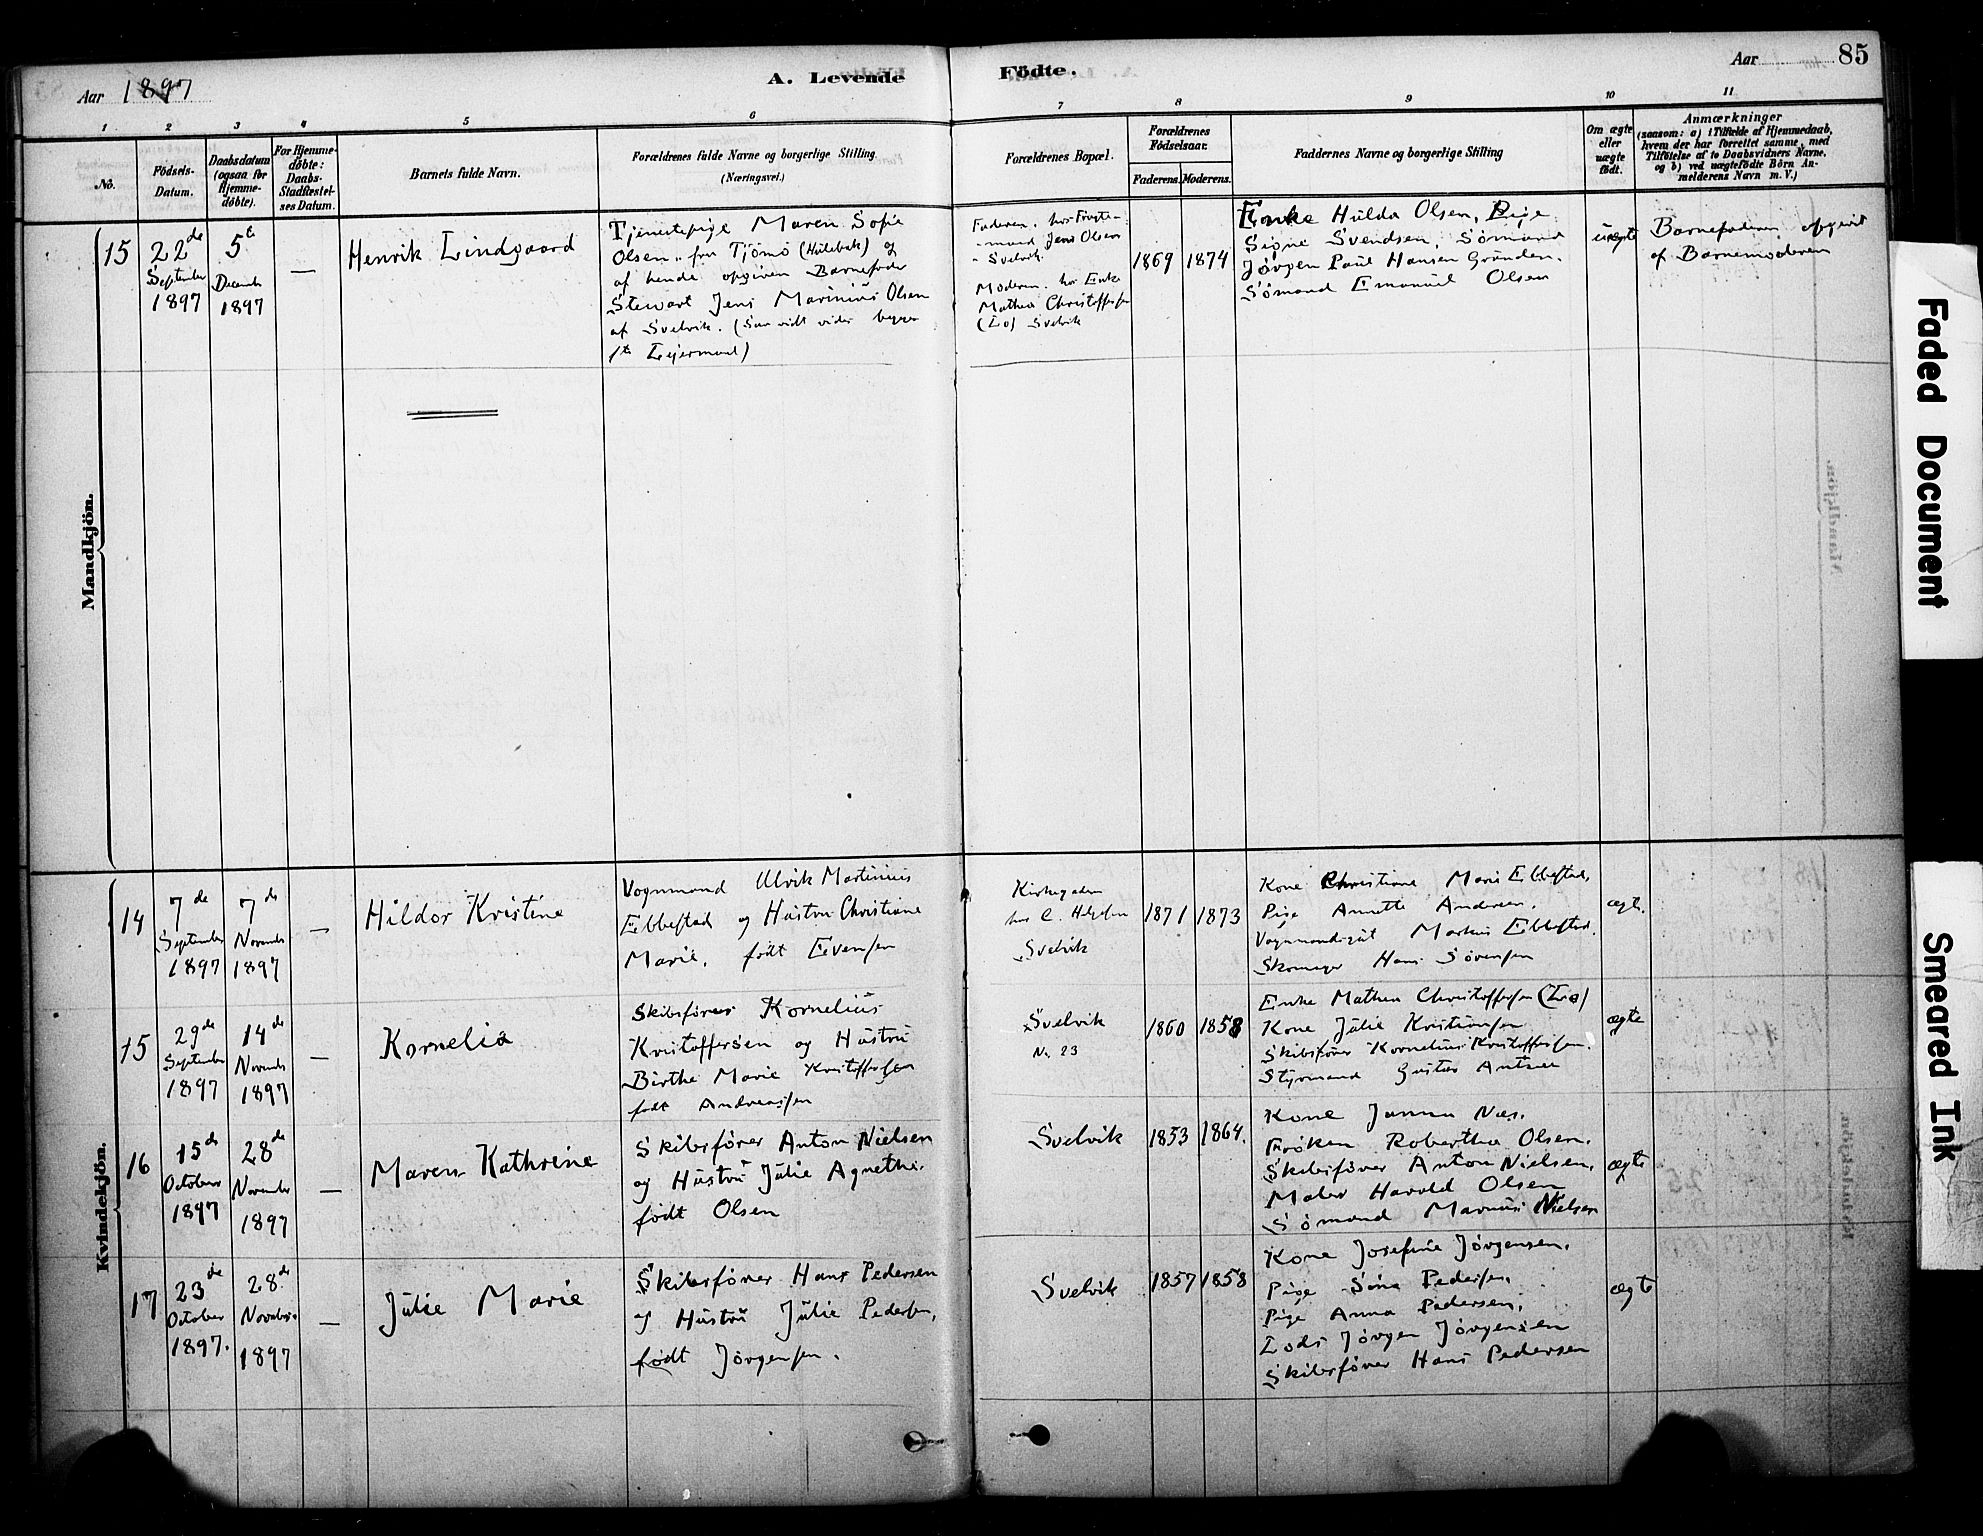 Aar 1897
A. Levende
Födte.
Aar
85
1
2
3
4
5
6
7
8
9
10
11
No.
Födsels-
Datum.
Daabsdatum
(ogsaa for
Hjemme-
döbte).
For Hjemme-
döbte:
Daabs-
Stadfæstel-
ses Datum.
Barnets fulde Navn.
Forældrenes fulde Navne og borgerlige Stilling
(Næringsvei.)
Forældrenes Bopæl.
Forældrenes
Födselsaar.
Faderens.
Moderens.
Faddernes Navne og borgerlige Stilling
Om ægte
eller
uægte
födt.
Anmærkninger
(saasom: a) i Tilfælde af Hjemmedaab,
hvem der har forrettet samme, med
Tilföielse af to Daabsvidners Navne,
og b) ved uægtefödte Börn An-
melderens Navn m. V.)
Mandkjön.
15
22de
September
1897
5te
December
1897
—
Henrik Lindgaard
Tjenestepige Maren Sofie
Olsen fra Tjömö og
af hende opgiven Barnefader
Stewart Jens Marinius Olsen
af Svelvik. (Saa vidt vides begges
1te Leiermaal)
Faderen. hos Fragte-
mand Jens Olsen
Svelvik.
Moderen. hos Enke
Mathea Christoffersen
(Lo) Svelvik
1869
1874
Enke Hulda Olsen, Pige
Signe Svendsen, Sömand
Jörgen Paul Hansen Grunden.
Sömand Emanuel Olsen
uægte
Barnefaderen opgivet
af Barnemoderen
Kvindekjön.
14
7de
September
1897
7de
November
1897
—
Hildor Kristine
Vognmand Ulrik Martinius
Ebbestad og Hustru Christiane
Marie, födt Evensen
Kirkegaden
hos C. Helgesen
Svelvik
1871
1873
Kone Christiane Marie Ebbestad,
Pige Annette Andersen,
Vognmandsgut Markus Ebbestad.
Skomager Hans Sörensen
ægte.
15
29de
September
1897
14de
November
1897
—
Kornelia
Skibsförer Kornelius
Kristoffersen og Hustru
Birthe Marie Kristoffersen
födt Andreassen
Svelvik
No. 23
1860
1858
Enke Mathea Christoffersen (Lo)
Kone Julie Kristiansen
Skibsförer Kornelius Kristoffersen.
Styrmand Gustav
ægte
16
15de
October
1897
28de
November
1897
—
Maren Kathrine
Skibsförer Anton Nielsen
og Hustru Julie Agnethe.
födt Olsen
Svelvik
1853
1864.
Kone Janna Næs.
Fröken Roberthe Olsen.
Skibsförer Anton Nielsen.
Maler Harald Olsen
Sömand Marius Nielsen
ægte
17
23de
October
1897.
28de
November
1897
—
Julie Marie
Skibsförer Hans Pedersen
og Hustru Julie Pedersen,
födt Jörgensen.
Svelvik
1857
1858
Kone Josefine Jörgensen.
Pige Sina Pedersen,
Pige Anna Pedersen,
Lods Jörgen Jörgensen
Skibsförer Hans Pedersen
ægte
Faded Document
Smeared Ink